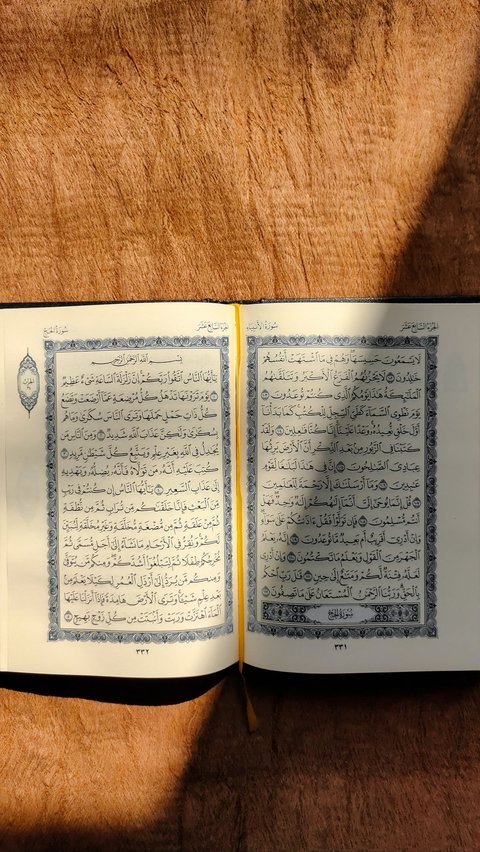 الجزء السابع عشر
سورة الأنبياء
لَا يَسْمَعُونَ حَسِيسَهَا وَهُمْ فِي مَا ٱشْتَهَتْ أَنفُسُهُمْ
خَٰلِدُونَ ١٠٢ لَا يَحْزُنُهُمُ ٱلْفَزَعُ ٱلْأَكْبَرُ وَتَتَلَقَّىٰهُمُ
ٱلْمَلَٰٓئِكَةُ هَٰذَا يَوْمُكُمُ ٱلَّذِي كُنتُمْ تُوعَدُونَ ١٠٣
يَوْمَ نَطْوِي ٱلسَّمَآءَ كَطَيِّ ٱلسِّجِلِّ لِلْكُتُبِ كَمَا بَدَأْنَآ
أَوَّلَ خَلْقٍ نُّعِيدُهُۥ وَعْدًا عَلَيْنَآ إِنَّا كُنَّا فَٰعِلِينَ ١٠٤ وَلَقَدْ
كَتَبْنَا فِي ٱلزَّبُورِ مِنۢ بَعْدِ ٱلذِّكْرِ أَنَّ ٱلْأَرْضَ يَرِثُهَا
عِبَادِيَ ٱلصَّٰلِحُونَ ١٠٥ إِنَّ فِي هَٰذَا لَبَلَٰغًا لِّقَوْمٍ
عَٰبِدِينَ ١٠٦ وَمَآ أَرْسَلْنَٰكَ إِلَّا رَحْمَةً لِّلْعَٰلَمِينَ ١٠٧
قُلْ إِنَّمَا يُوحَىٰٓ إِلَيَّ أَنَّمَآ إِلَٰهُكُمْ إِلَٰهٌ وَٰحِدٌ فَهَلْ
أَنتُم مُّسْلِمُونَ ١٠٨ فَإِن تَوَلَّوْا۟ فَقُلْ ءَاذَنتُكُمْ عَلَىٰ سَوَآءٍ
وَإِنْ أَدْرِيٓ أَقَرِيبٌ أَم بَعِيدٌ مَّا تُوعَدُونَ ١٠٩ إِنَّهُۥ يَعْلَمُ
ٱلْجَهْرَ مِنَ ٱلْقَوْلِ وَيَعْلَمُ مَا تَكْتُمُونَ ١١٠ وَإِنْ أَدْرِي
لَعَلَّهُۥ فِتْنَةٌ لَّكُمْ وَمَتَٰعٌ إِلَىٰ حِينٍ ١١١ قَٰلَ رَبِّ ٱحْكُم
بِٱلْحَقِّ وَرَبُّنَا ٱلرَّحْمَٰنُ ٱلْمُسْتَعَانُ عَلَىٰ مَا تَصِفُونَ ١١٢
سورة الحج
٣٣١
الجزء السابع عشر
سورة الحج
بِسْمِ ٱللَّهِ ٱلرَّحْمَٰنِ ٱلرَّحِيمِ
يَٰٓأَيُّهَا ٱلنَّاسُ ٱتَّقُوا۟ رَبَّكُمْ إِنَّ زَلْزَلَةَ ٱلسَّاعَةِ شَيْءٌ عَظِيمٌ
١ يَوْمَ تَرَوْنَهَا تَذْهَلُ كُلُّ مُرْضِعَةٍ عَمَّآ أَرْضَعَتْ وَتَضَعُ
كُلُّ ذَاتِ حَمْلٍ حَمْلَهَا وَتَرَى ٱلنَّاسَ سُكَٰرَىٰ وَمَا هُم
بِسُكَٰرَىٰ وَلَٰكِنَّ عَذَابَ ٱللَّهِ شَدِيدٌ ٢ وَمِنَ ٱلنَّاسِ مَن
يُجَٰدِلُ فِي ٱللَّهِ بِغَيْرِ عِلْمٍ وَيَتَّبِعُ كُلَّ شَيْطَٰنٍ مَّرِيدٍ ٣
كُتِبَ عَلَيْهِ أَنَّهُۥ مَن تَوَلَّاهُ فَأَنَّهُۥ يُضِلُّهُۥ وَيَهْدِيهِ
إِلَىٰ عَذَابِ ٱلسَّعِيرِ ٤ يَٰٓأَيُّهَا ٱلنَّاسُ إِن كُنتُمْ فِي رَيْبٍ
مِّنَ ٱلْبَعْثِ فَإِنَّا خَلَقْنَٰكُم مِّن تُرَابٍ ثُمَّ مِن نُّطْفَةٍ
ثُمَّ مِنْ عَلَقَةٍ ثُمَّ مِن مُّضْغَةٍ مُّخَلَّقَةٍ وَغَيْرِ مُخَلَّقَةٍ لِّنُبَيِّنَ
لَكُمْ وَنُقِرُّ فِي ٱلْأَرْحَامِ مَا نَشَآءُ إِلَىٰٓ أَجَلٍ مُّسَمًّى ثُمَّ
نُخْرِجُكُمْ طِفْلًا ثُمَّ لِتَبْلُغُوٓا۟ أَشُدَّكُمْ وَمِنكُم مَّن يُتَوَفَّىٰ
وَمِنكُم مَّن يُرَدُّ إِلَىٰٓ أَرْذَلِ ٱلْعُمُرِ لِكَيْلَا يَعْلَمَ مِنۢ
بَعْدِ عِلْمٍ شَيْـًٔا وَتَرَى ٱلْأَرْضَ هَامِدَةً فَإِذَآ أَنزَلْنَا عَلَيْهَا
ٱلْمَآءَ ٱهْتَزَّتْ وَرَبَتْ وَأَنۢبَتَتْ مِن كُلِّ زَوْجٍۭ بَهِيجٍ ٥
٣٣٢